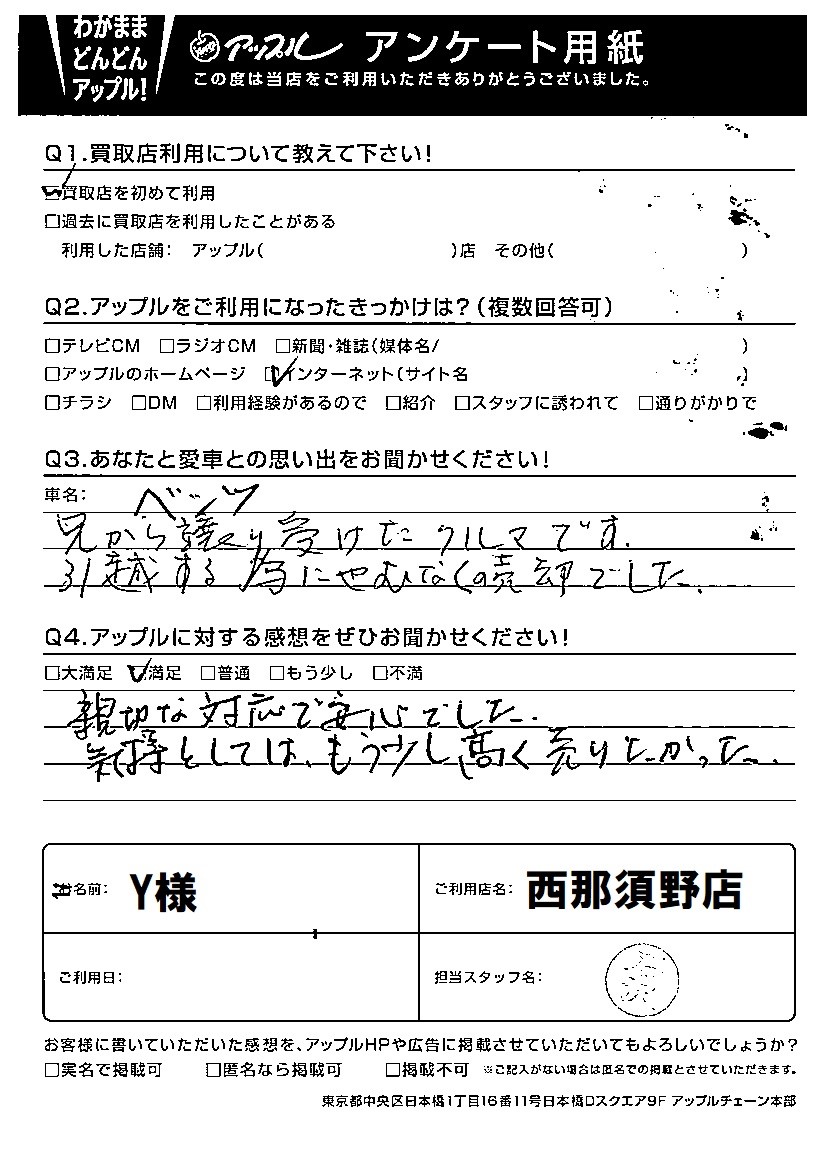 わがまま
どんどん
アップル!
アップル アンケート用紙
この度は当店をご利用いただきありがとうございました。
Q1.買取店利用について教えて下さい!
☑買取店を初めて利用
□過去に買取店を利用したことがある
利用した店舗: アップル( )店 その他( )
Q2.アップルをご利用になったきっかけは?(複数回答可)
□テレビCM □ラジオCM □新聞・雑誌(媒体名/ )
□アップルのホームページ ☑インターネット(サイト名 )
□チラシ □DM □利用経験があるので □紹介 □スタッフに誘われて □通りがかりで
Q3.あなたと愛車との思い出をお聞かせください!
車名: ベンツ
兄から譲り受けたクルマです.
引越する為にやむなくの売却でした.
Q4.アップルに対する感想をぜひお聞かせください!
□大満足 ☑満足 □普通 □もう少し □不満
親切な対応で安心でした.
気持としては、もう少し高く売りたかった.
お名前: Y様
ご利用店名: 西那須野店
ご利用日:
担当スタッフ名:
お客様に書いていただいた感想を、アップルHPや広告に掲載させていただいてもよろしいでしょうか?
□実名で掲載可 □匿名なら掲載可 □掲載不可 ※ご記入がない場合は匿名での掲載とさせていただきます。
東京都中央区日本橋1丁目16番11号日本橋Dスクエア9F アップルチェーン本部